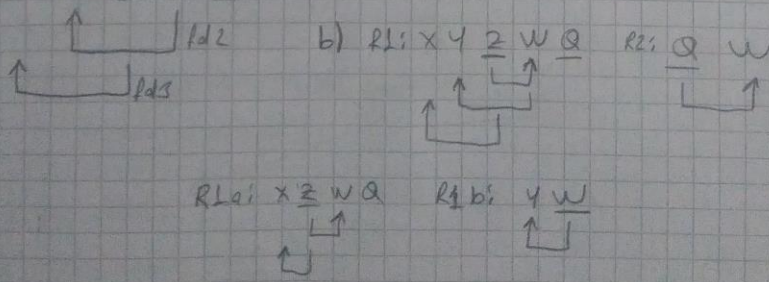 fd2
b) R1: X Y Z W Q R2: Q W
fd3
R1a: X Z W Q R1b: Y W